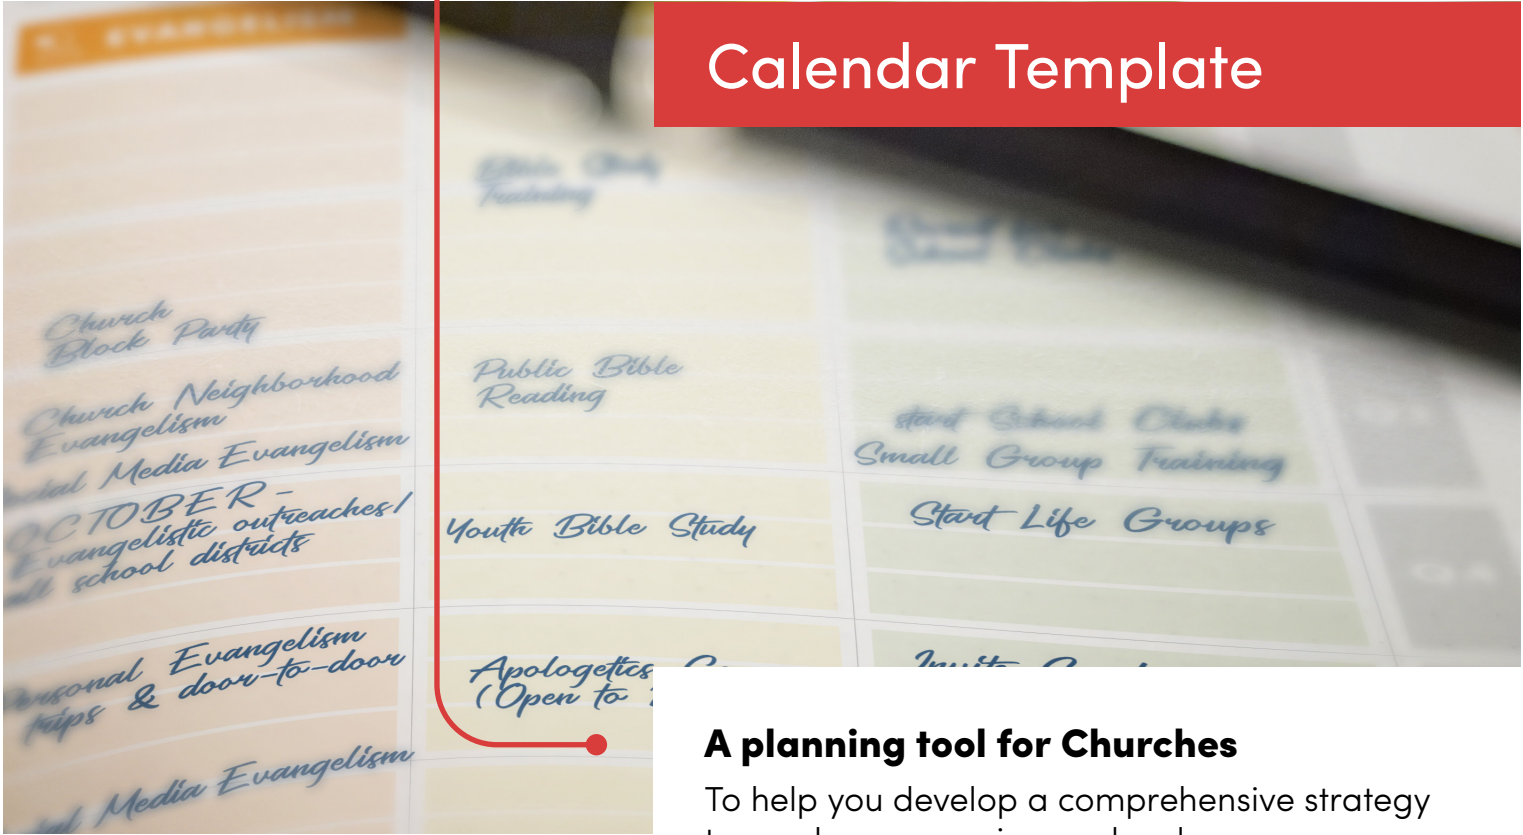 EVANGELISM
Calendar Template
Bible Study
Training
School Clubs
Church
Block Party
Church Neighborhood
Evangelism
Media Evangelism
OCTOBER -
Evangelistic outreaches/
all school districts
Personal Evangelism
trips & door-to-door
Media Evangelism
Public Bible
Reading
Youth Bible Study
Apologetics
(Open to
start School Clubs
Small Group Training
Start Life Groups
Invite
Q4
A planning tool for Churches
To help you develop a comprehensive strategy